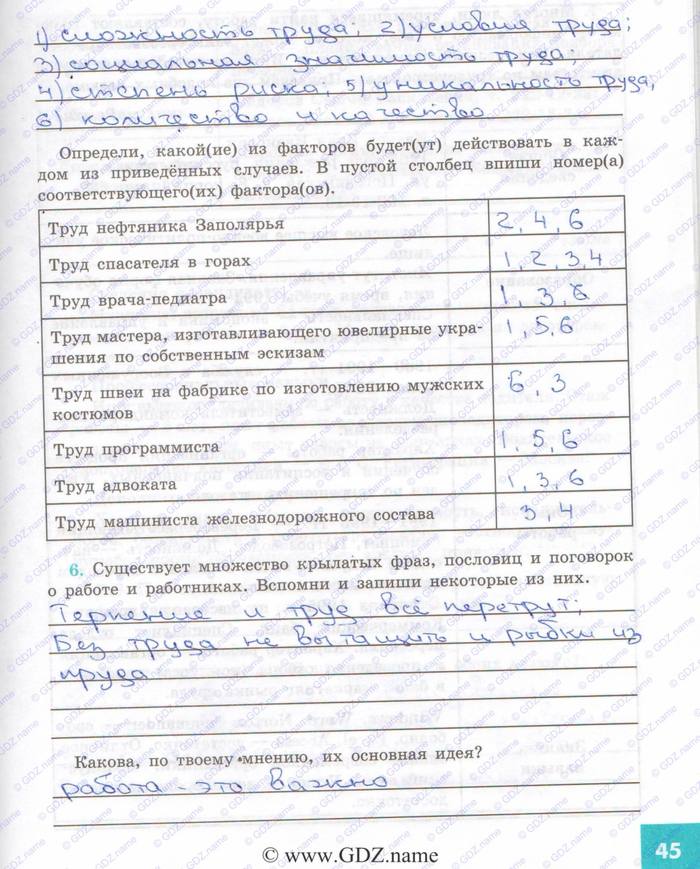 1) сложность труда; 2) условия труда;
3) социальная значимость труда;
4) степень риска; 5) уникальность труда;
6) количество и качество
Определи, какой(ие) из факторов будет(ут) действовать в каж-
дом из приведённых случаев. В пустой столбец впиши номер(а)
соответствующего(их) фактора(ов).
Труд нефтяника Заполярья 2, 4, 6
Труд спасателя в горах 1, 2, 3, 4
Труд врача-педиатра 1, 3, 6
Труд мастера, изготавливающего ювелирные укра-
шения по собственным эскизам 1, 5, 6
Труд швеи на фабрике по изготовлению мужских
костюмов 6, 3
Труд программиста 1, 5, 6
Труд адвоката 1, 3, 6
Труд машиниста железнодорожного состава 3, 4
6. Существует множество крылатых фраз, пословиц и поговорок
о работе и работниках. Вспомни и запиши некоторые из них.
Терпение и труд всё перетрут;
Без труда не вытащить и рыбки из
пруда
Какова, по твоему мнению, их основная идея?
работа - это важно
45
© www.GDZ.name